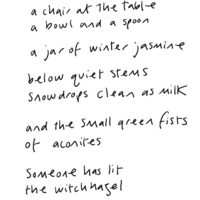 a chair at the table
a bowl and a spoon
a jar of winter jasmine
below quiet stems
snowdrops clean as milk
and the small green fists
of aconites
Someone has lit
the witchhazel